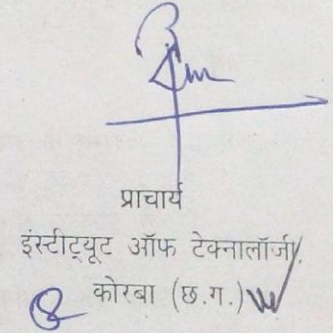 प्राचार्य
इंस्टीट्यूट ऑफ टेक्नालॉजी,
कोरबा (छ.ग.)